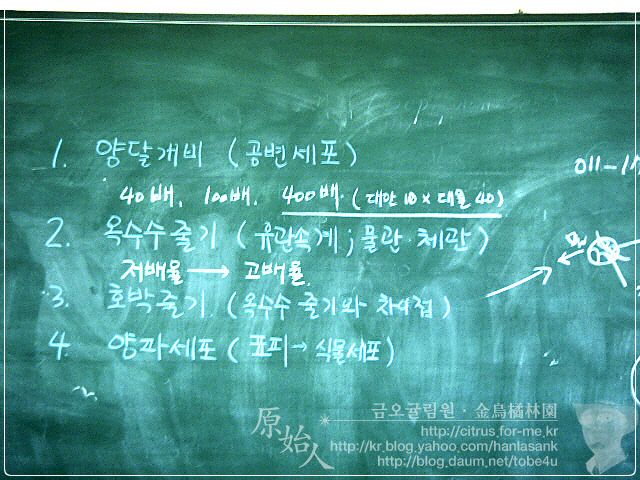 1. 양달개비 (공변세포)
011-17
40배, 100배, 400배. (대안 10 x 대물 40)
2. 옥수수줄기 (유관속계; 물관·체관)
저배율 → 고배율.
3. 호박줄기. (옥수수 줄기와 차이점)
4. 양파세포 (표피→식물세포)
原始人
금오귤림원·金烏橘林園
http://citrus.for-me.kr
http://kr.blog.yahoo.com/hanlasank
http://blog.daum.net/tobe4u